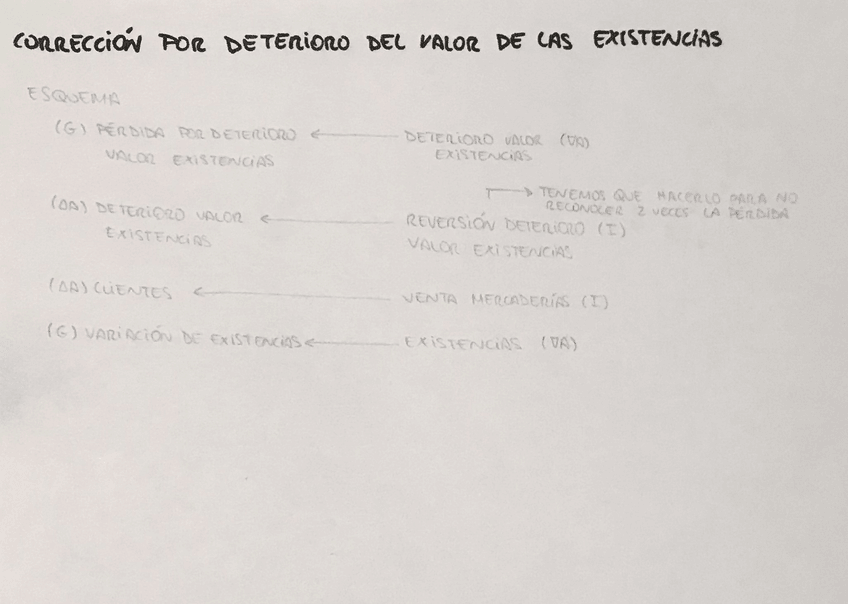 CORRECCIÓN POR DETERIORO DEL VALOR DE LAS EXISTENCIAS
ESQUEMA
(G) PÉRDIDA POR DETERIORO ← DETERIORO VALOR (∇A)
VALOR EXISTENCIAS EXISTENCIAS
→ TENEMOS QUE HACERLO PARA NO
RECONOCER 2 VECES LA PÉRDIDA
(ΔA) DETERIORO VALOR ← REVERSIÓN DETERIORO (I)
EXISTENCIAS VALOR EXISTENCIAS
(ΔA) CLIENTES ← VENTA MERCADERÍAS (I)
(G) VARIACIÓN DE EXISTENCIAS ← EXISTENCIAS (∇A)